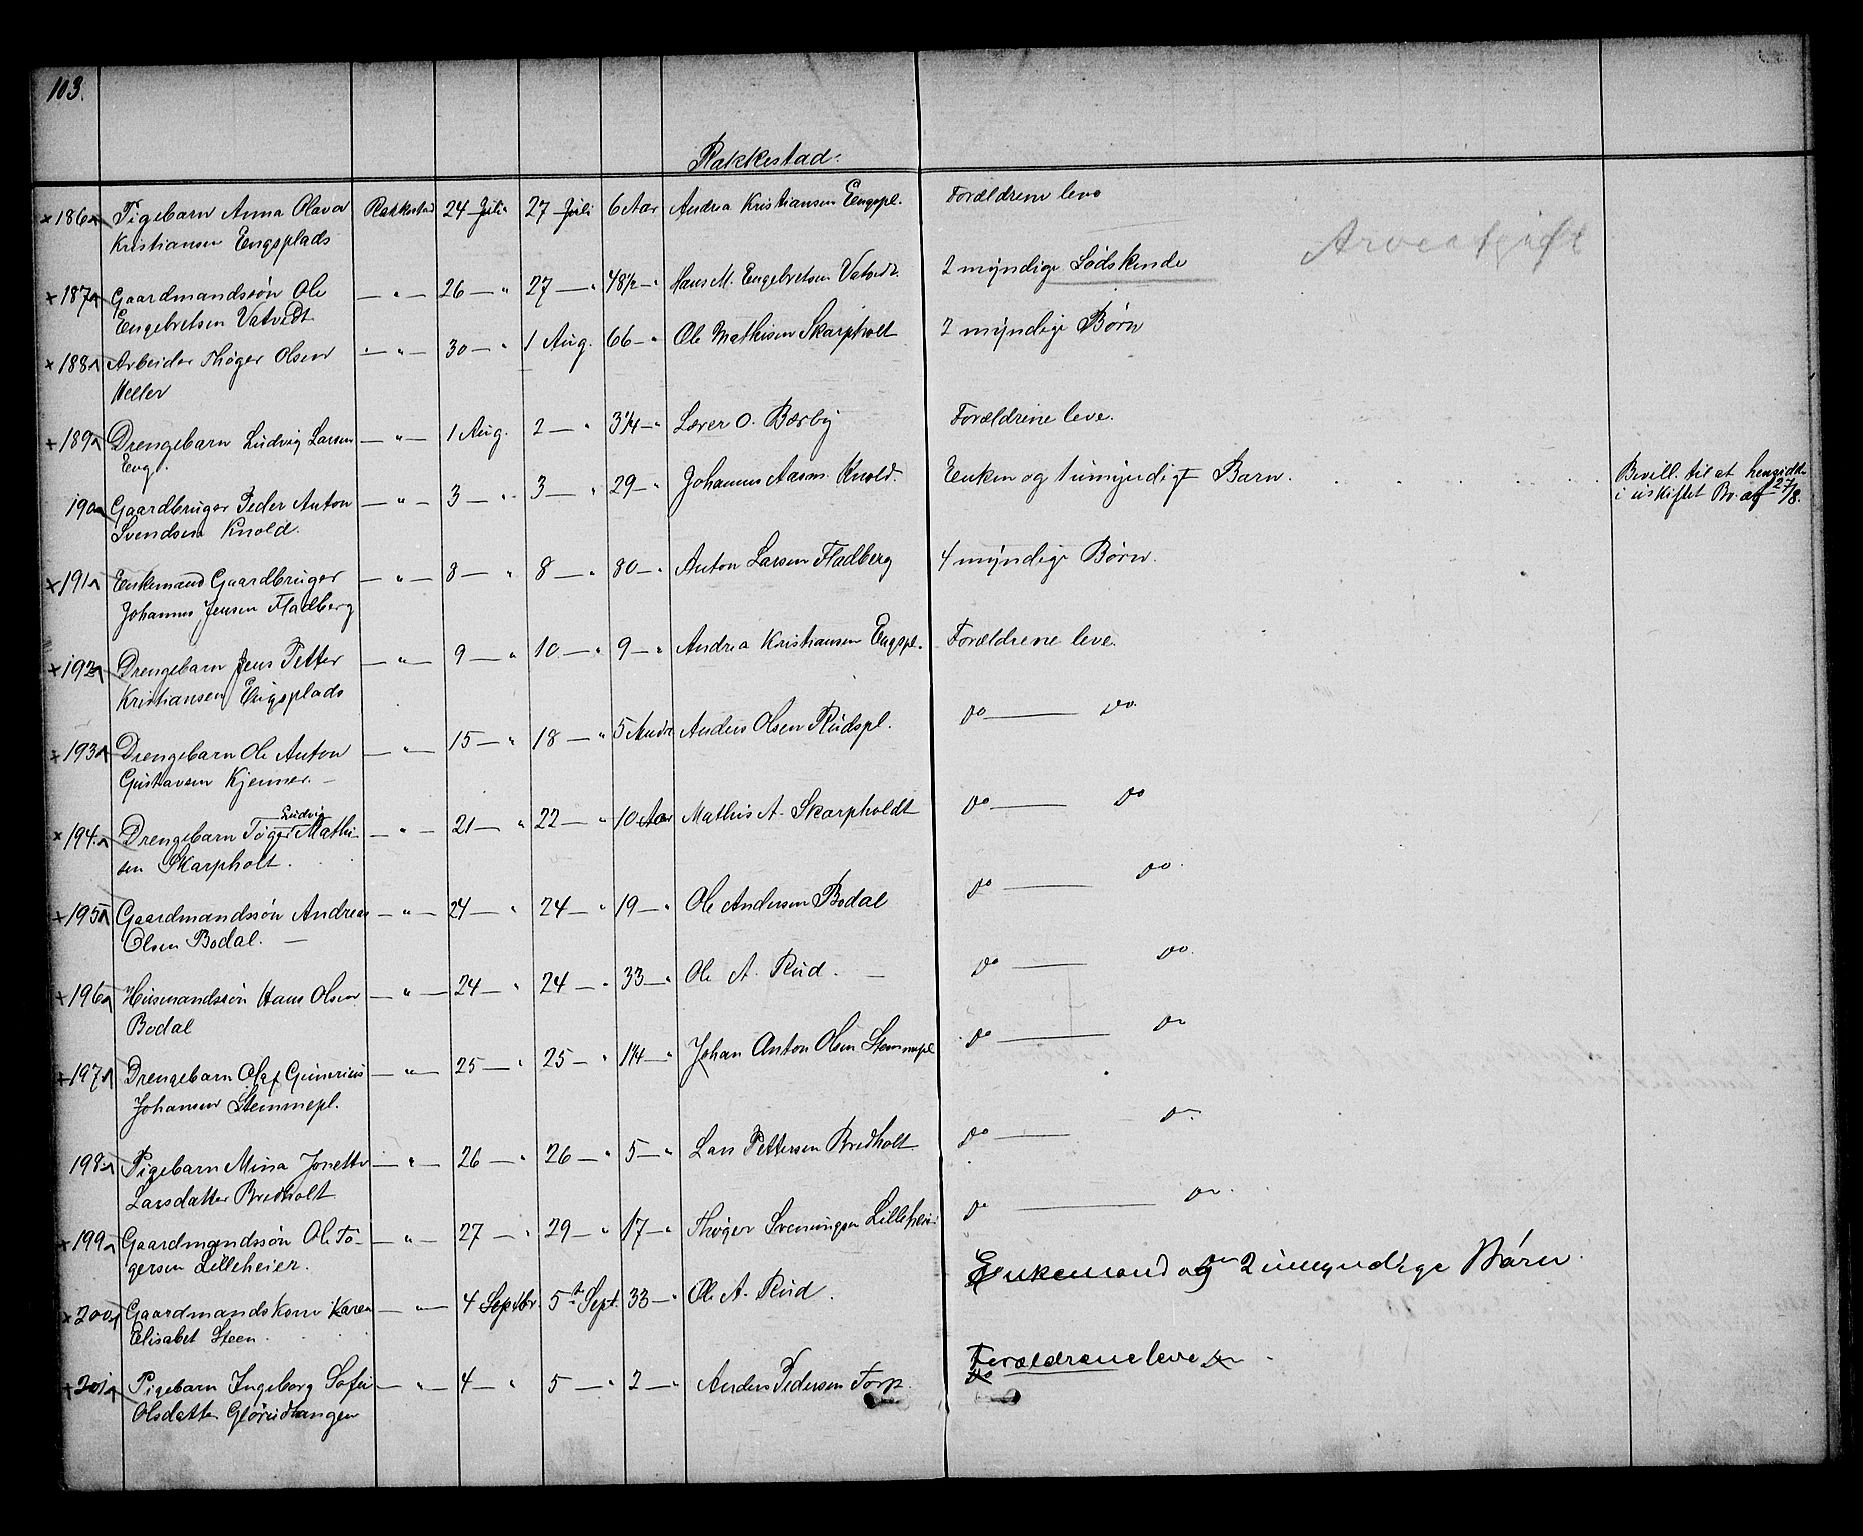 103.
Rakkestad.
× 186 Pigebarn Anna Olava Rakkestad 24 Juli 27 Juli 6 Aar Andrea Kristiansen Engspl. Forældrene leve
Kristiansen Engsplads
Arveafgift
× 187 Gaardmandssøn Ole — " — 26 — " 27 — " 48½ — " Hans M. Engebretsen Vatvedt 2 myndige Sødskende
Engebretsen Vatvedt
× 188 Arbeider Thøger Olsen — " — 30 — " 1 Aug. 66 — " Ole Mathisen Skarpholt 2 myndige Børn
Heller
× 189 Drengebarn Ludvig Larsen — " — 1 Aug. 2 — " 3¼ — " Lærer O. Bærby Forældrene leve.
Eng.
190 Gaardbruger Peder Anton — " — 3 — " 3 — " 29 — " Johannes Aasm. Knold. Enken og 1 umyndigt Barn. Bevill. til at hensidde
Svendsen Knold. i uskiftet Bo af 27/8.
× 191 Enkemand Gaardbruger — " — 8 — " 8 — " 80 — " Anton Larsen Fladberg 4 myndige Børn.
Johannes Jensen Fladberg
× 192 Drengebarn Jens Petter — " — 9 — " 10 — " 9 — " Andrea Kristiansen Engspl. Forældrene leve.
Kristiansen Engsplads
× 193 Drengebarn Ole Anton — " — 15 — " 18 — " 5 Anders Olsen Rudspl. do — do
Gustavsen Kjenner. —
Ludvig
× 194. Drengebarn Tøger Mathi- — " — 21 — " 22 — " 10 Aar Mathis A. Skarpholdt do — do
sen Skarpholt.
× 195 Gaardmandssøn Andreas — " — 24 — " 24 — " 19 — " Ole Andersen Bodal do — do.
Olsen Bodal. —
× 196 Husmandssøn Hans Olsen — " — 24 — " 24 — " 33 — " Ole A. Rud. — do — do.
Bodal
× 197 Drengebarn Olaf Gunerius — " — 25 — " 25 — " 1¼ — " Johan Anton Olsen Stemmepl do — do
Johansen Stemmepl.
198 Pigebarn Mina Jonette — " — 26 — " 26 — " 5 — " Lars Pettersen Bredholt do — do
Larsdatter Bredholt
× 199 Gaardmandssøn Ole Tø- — " — 27 — " 29 — " 17 — " Thøger Svenningsen Lilleheier do — do.
gersen Lilleheier.
× 200 Gaardmandskone Karen — " — 4 Septbr. 5te Sept. 33 — " Ole A. Rud. Enkemand og 2 umyndige Børn.
Elisabet Steen.
× 201 Pigebarn Ingeborg Sofie — " — 4 — " 5 — " 2 — " Anders Pedersen Torp. Forældrene leve
Olsdatter Glørudhangen